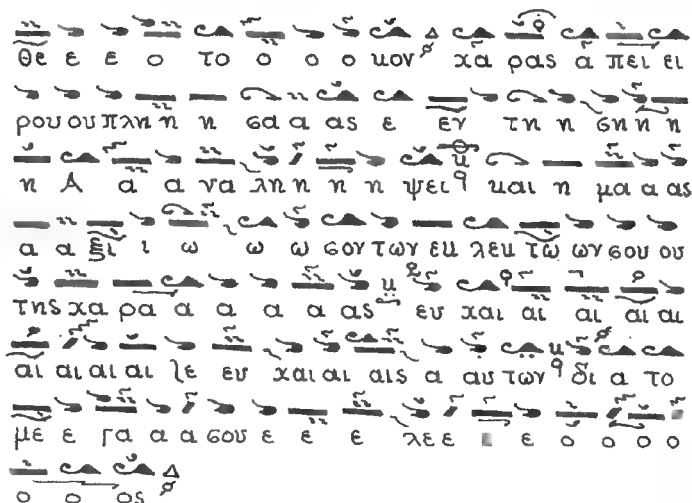 θε ε ε ο το ο ο ο κον χα ρας α πει ει
ρου ου πλη η η σα α ας ε εν τη η ση η η
η Α α α να λη η η η ψει και η μα α ας
α α ξι ι ω ω ω σον των εκ λεκ τω ων σου ου
της χα ρα α α α α ας ευ χαι αι αι αι αι
αι αι αι αι λε ευ χαι αι αις α αυ των δι α το
με ε γα α α σου ε ε ε λε ε ε ο ο ο ο
ο ο ος